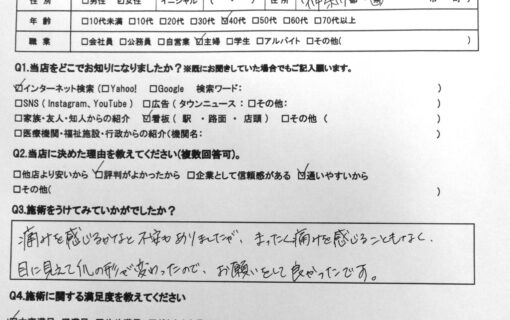 性 別 □男性 ☑女性 イニシャル ( ・ ) 住 所
年 齢 □10代未満 □10代 □20代 □30代 ☑40代 □50代 □60代 □70代以上
職 業 □会社員 □公務員 □自営業 ☑主婦 □学生 □アルバイト □その他(
Q1.当店をどこでお知りになりましたか?※既にお聞きしていた場合でもご記入願います。
☑インターネット検索(□Yahoo! □Google 検索ワード: )
□SNS ( Instagram、YouTube ) □広告 ( タウンニュース : □その他: )
□家族・友人・知人からの紹介 ☑看板 ( 駅 ・路面 ・ 店頭 ) □その他 ( )
□医療機関・福祉施設・行政からの紹介(機関名: )
Q2.当店に決めた理由を教えてください(複数回答可)。
□他店より安いから ☑評判がよかったから □企業として信頼感がある ☑通いやすいから
□その他( )
Q3.施術をうけてみていかがでしたか?
痛みを感じるかなと不安もありましたが、まったく痛みを感じることもなく、
目に見えて爪の形が変わったので、お願いをして良かったです。
Q4.施術に関する満足度を教えてください